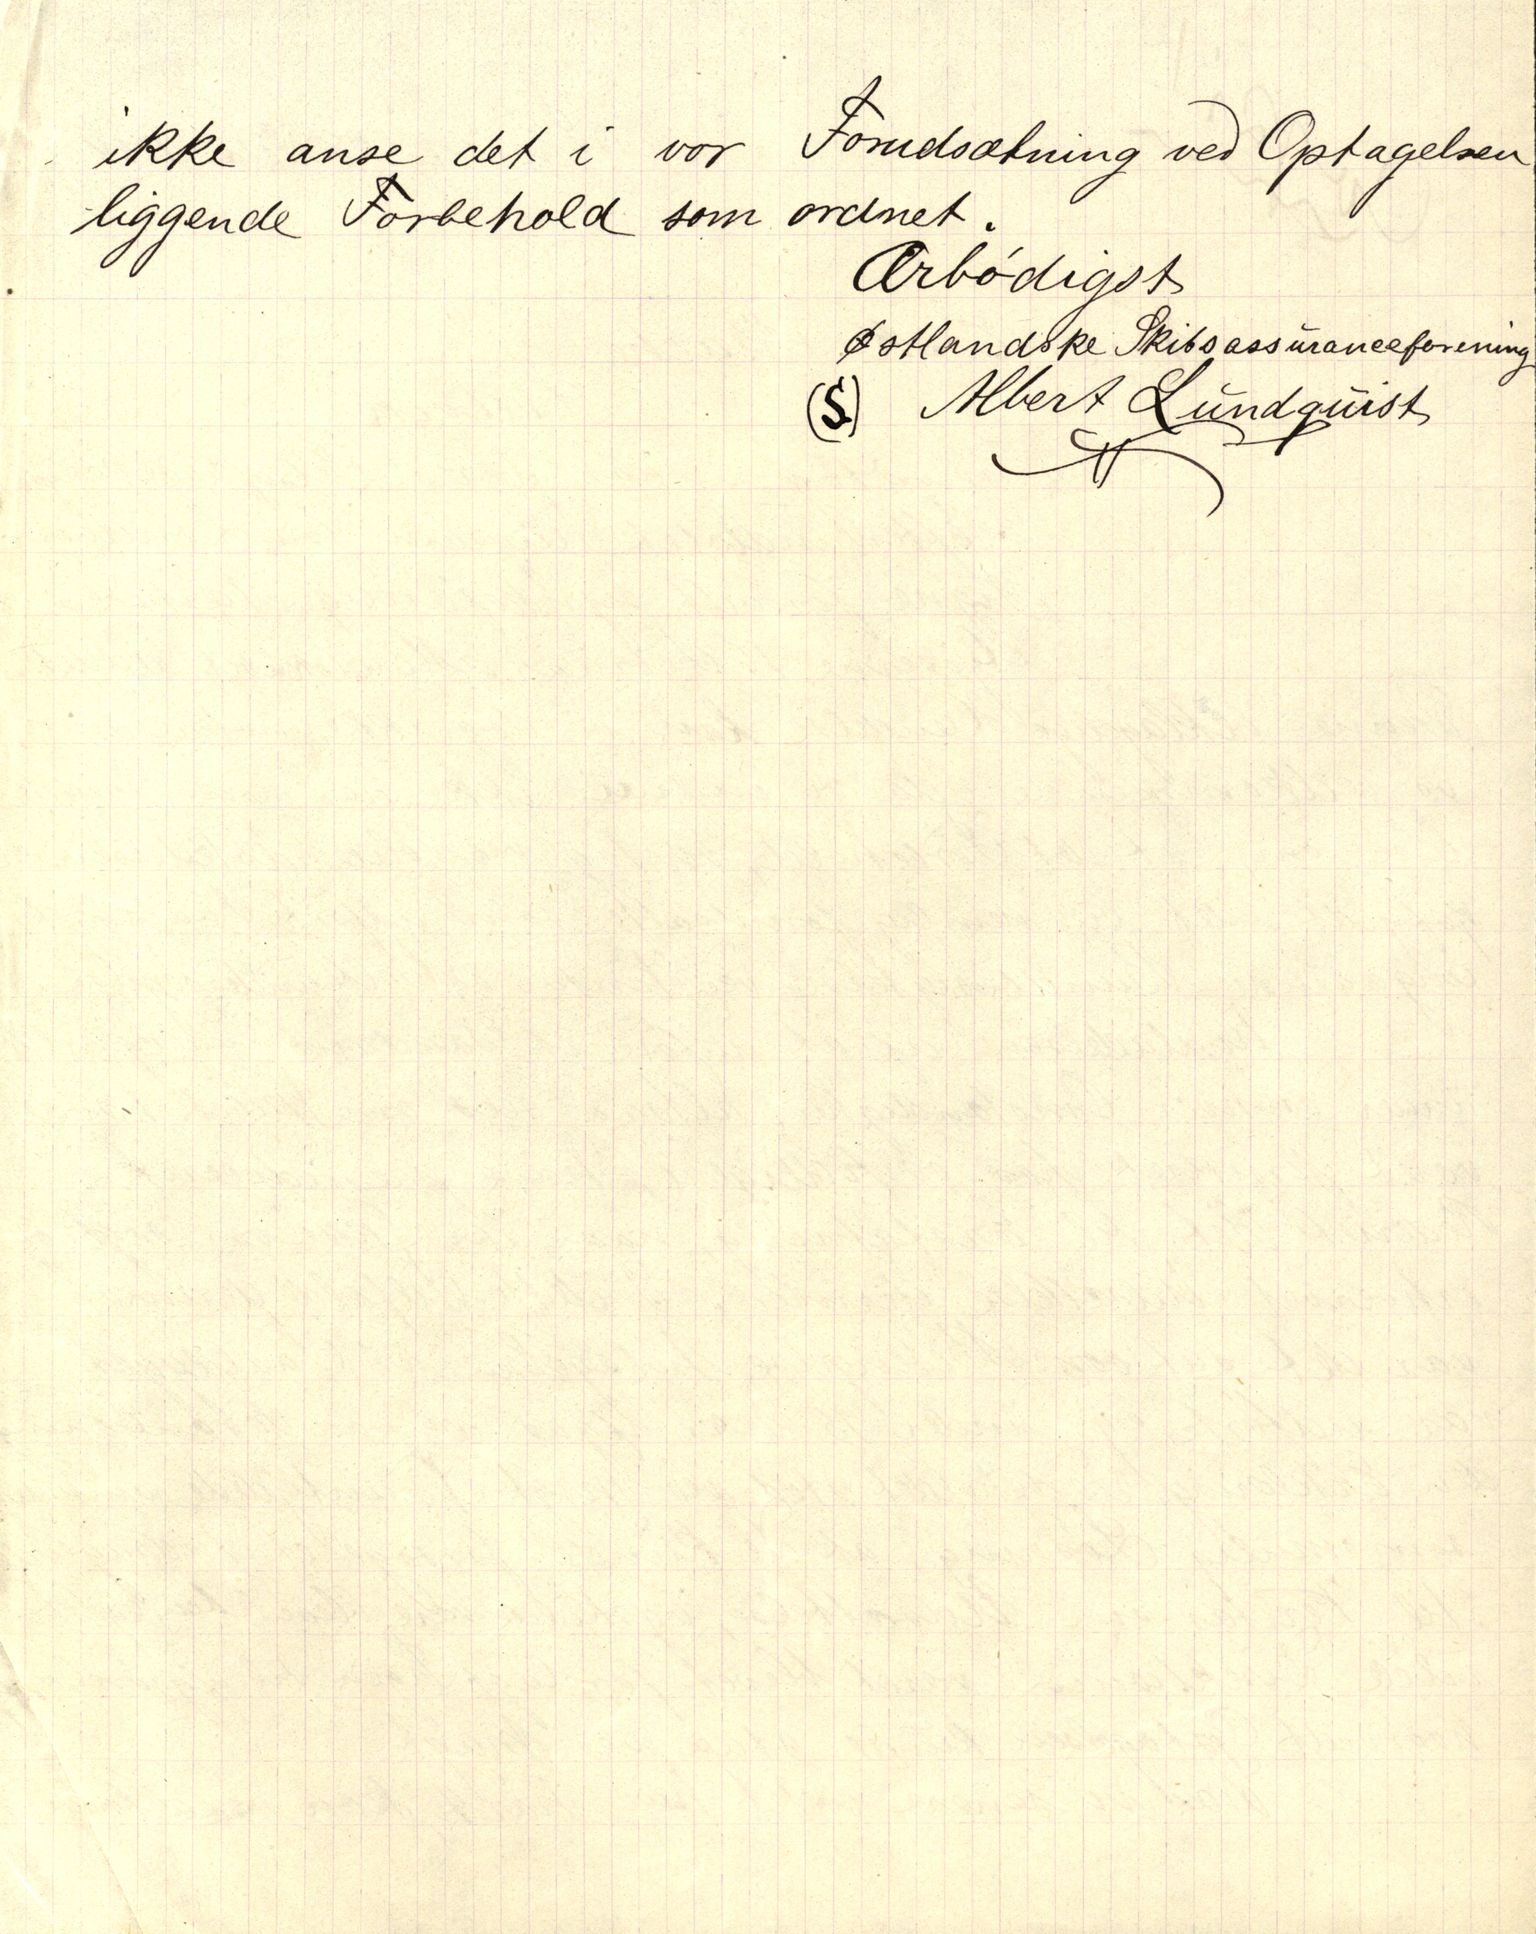 ikke anse det i vor Forudsætning ved Optagelsen
liggende Forbehold som ordnet.
Ærbödigst
Østlandske Skibsassuranceforening
(S) Albert Lundquist